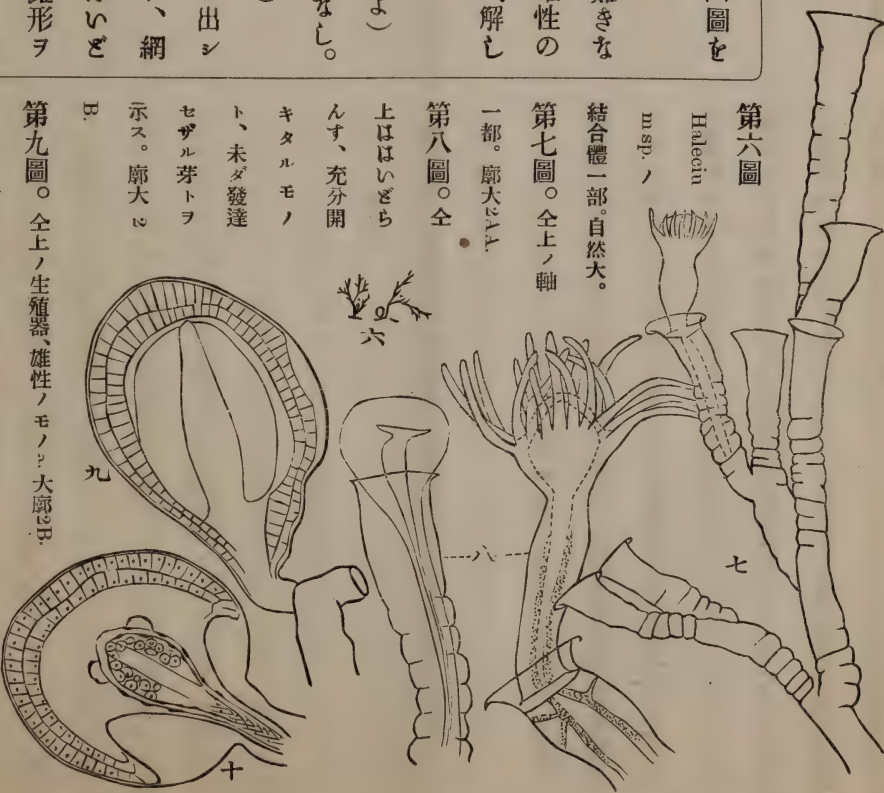 圖を
難きな
雄性の
解し
よ）
なし。
）
出シ
、網
いど
形ヲ
第六圖
Halecin
m sp. ノ
結合體一部。自然大。
第七圖。仝上ノ軸
一都。廓大2A.A.
第八圖。仝
上ははいどら
んす、充分開
キタルモノ
ト、未ダ發達
セザル芽トヲ
示ス。廓大 2
B.
第九圖。仝上ノ生殖器、雄性ノモノ?. 大廓2B.
六
七
八
九
十